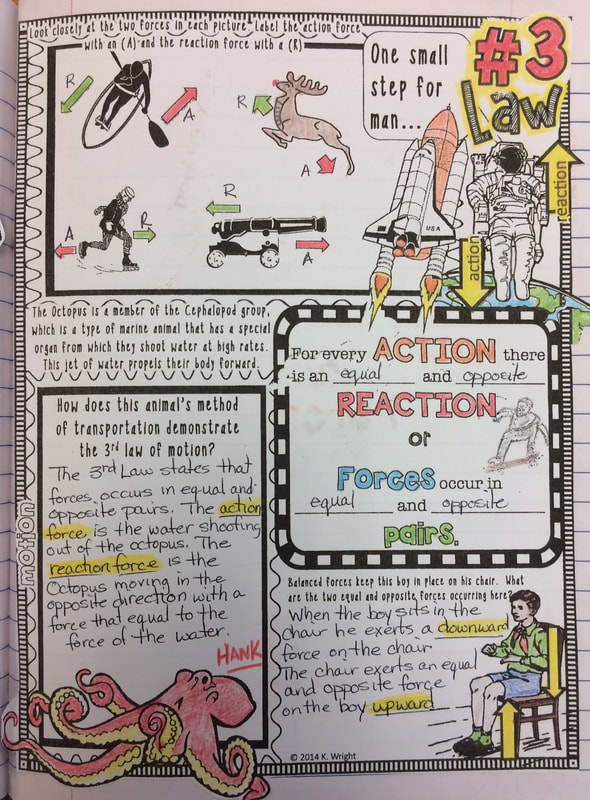 Look closely at the two forces in each picture. Label the action force
with an (A) and the reaction force with a (R)
R
A
R
A
A
R
R
A
One small
step for
man...
#3
Law
USA
action
reaction
The Octopus is a member of the Cephalopod group,
which is a type of marine animal that has a special
organ from which they shoot water at high rates.
This jet of water propels their body forward.
For every ACTION there
is an equal and opposite
REACTION
or
Forces occur in
equal and opposite
pairs.
How does this animal's method
of transportation demonstrate
the 3rd law of motion?
The 3rd Law states that
forces occurs in equal and
opposite pairs. The action
force is the water shooting
out of the octopus. The
reaction force is the
Octopus moving in the
opposite direction with a
force that equal to the
force of the water.
HANK
motion
Balanced forces keep this boy in place on his chair. What
are the two equal and opposite forces occurring here?
When the boy sits in the
chair he exerts a downward
force on the chair
The chair exerts an equal
and opposite force
on the boy upward
© 2014 K. Wright